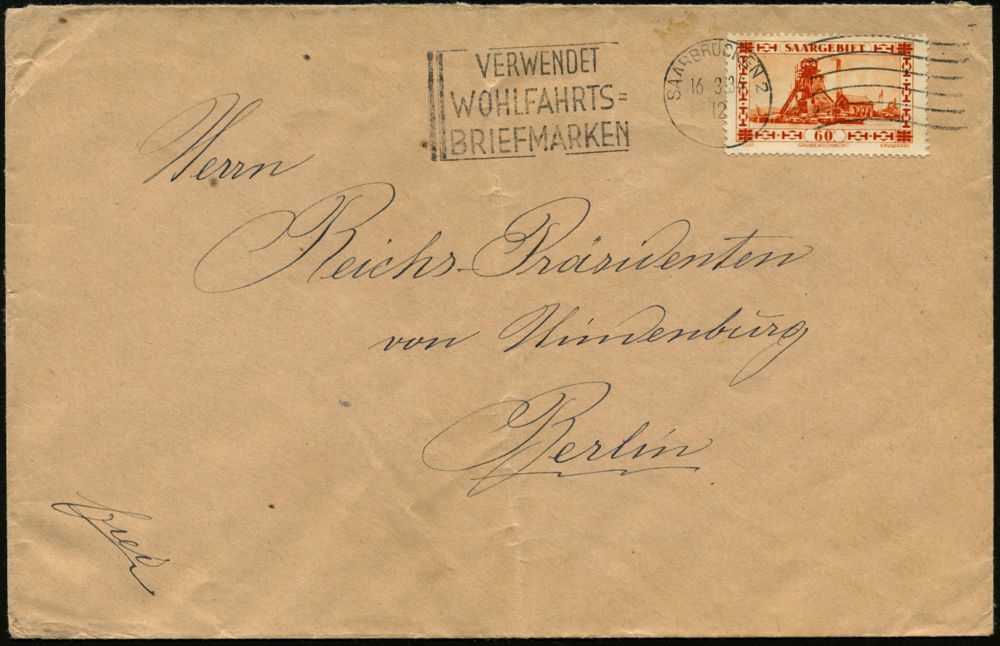 VERWENDET
WOHLFAHRTS=
BRIEFMARKEN
SAARBRÜCKEN 2
16 3 3
12
SAARGEBIET
60
GRUBENSCHACHT
Herrn
Reichs-Präsidenten
von Hindenburg
Berlin